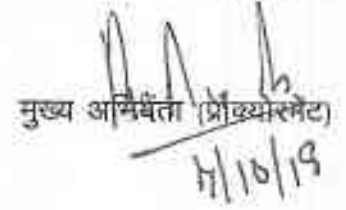 मुख्य अभियंता (प्रोक्योरमेंट)
/10/19